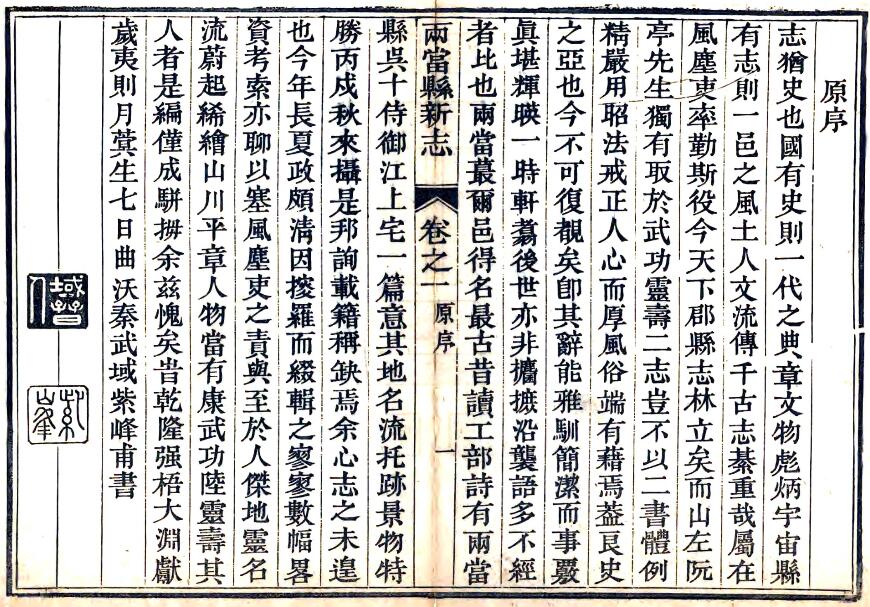 原序
志猶史也國有史則一代之典章文物彪炳宇宙縣
有志則一邑之風土人文流傳千古志綦重哉屬在
風塵吏率勤斯役今天下郡縣志林立矣而山左阮
亭先生獨有取於武功靈壽二志豈不以二書體例
精嚴用昭法戒正人心而厚風俗端有藉焉葢良史
之亞也今不可復覩矣卽其辭能雅馴簡潔而事嚴
眞堪輝暎一時軒翥後世亦非攟摭沿襲語多不經
者比也兩當蕞爾邑得名最古昔讀工部詩有兩當
兩當縣新志
卷之一
原序
一
縣吳十侍御江上宅一篇意其地名流托跡景物特
勝丙戍秋來攝是邦詢載籍稱缺焉余心志之未遑
也今年長夏政頗淸因搜羅而綴輯之寥寥數幅畧
資考索亦聊以塞風塵吏之責與至於人傑地靈名
流蔚起絺繪山川平章人物當有康武功陸靈壽其
人者是編僅成駢拇余兹愧矣旹乾隆强梧大淵獻
歲夷則月蓂生七日曲沃秦武域紫峰甫書
域
紫峰